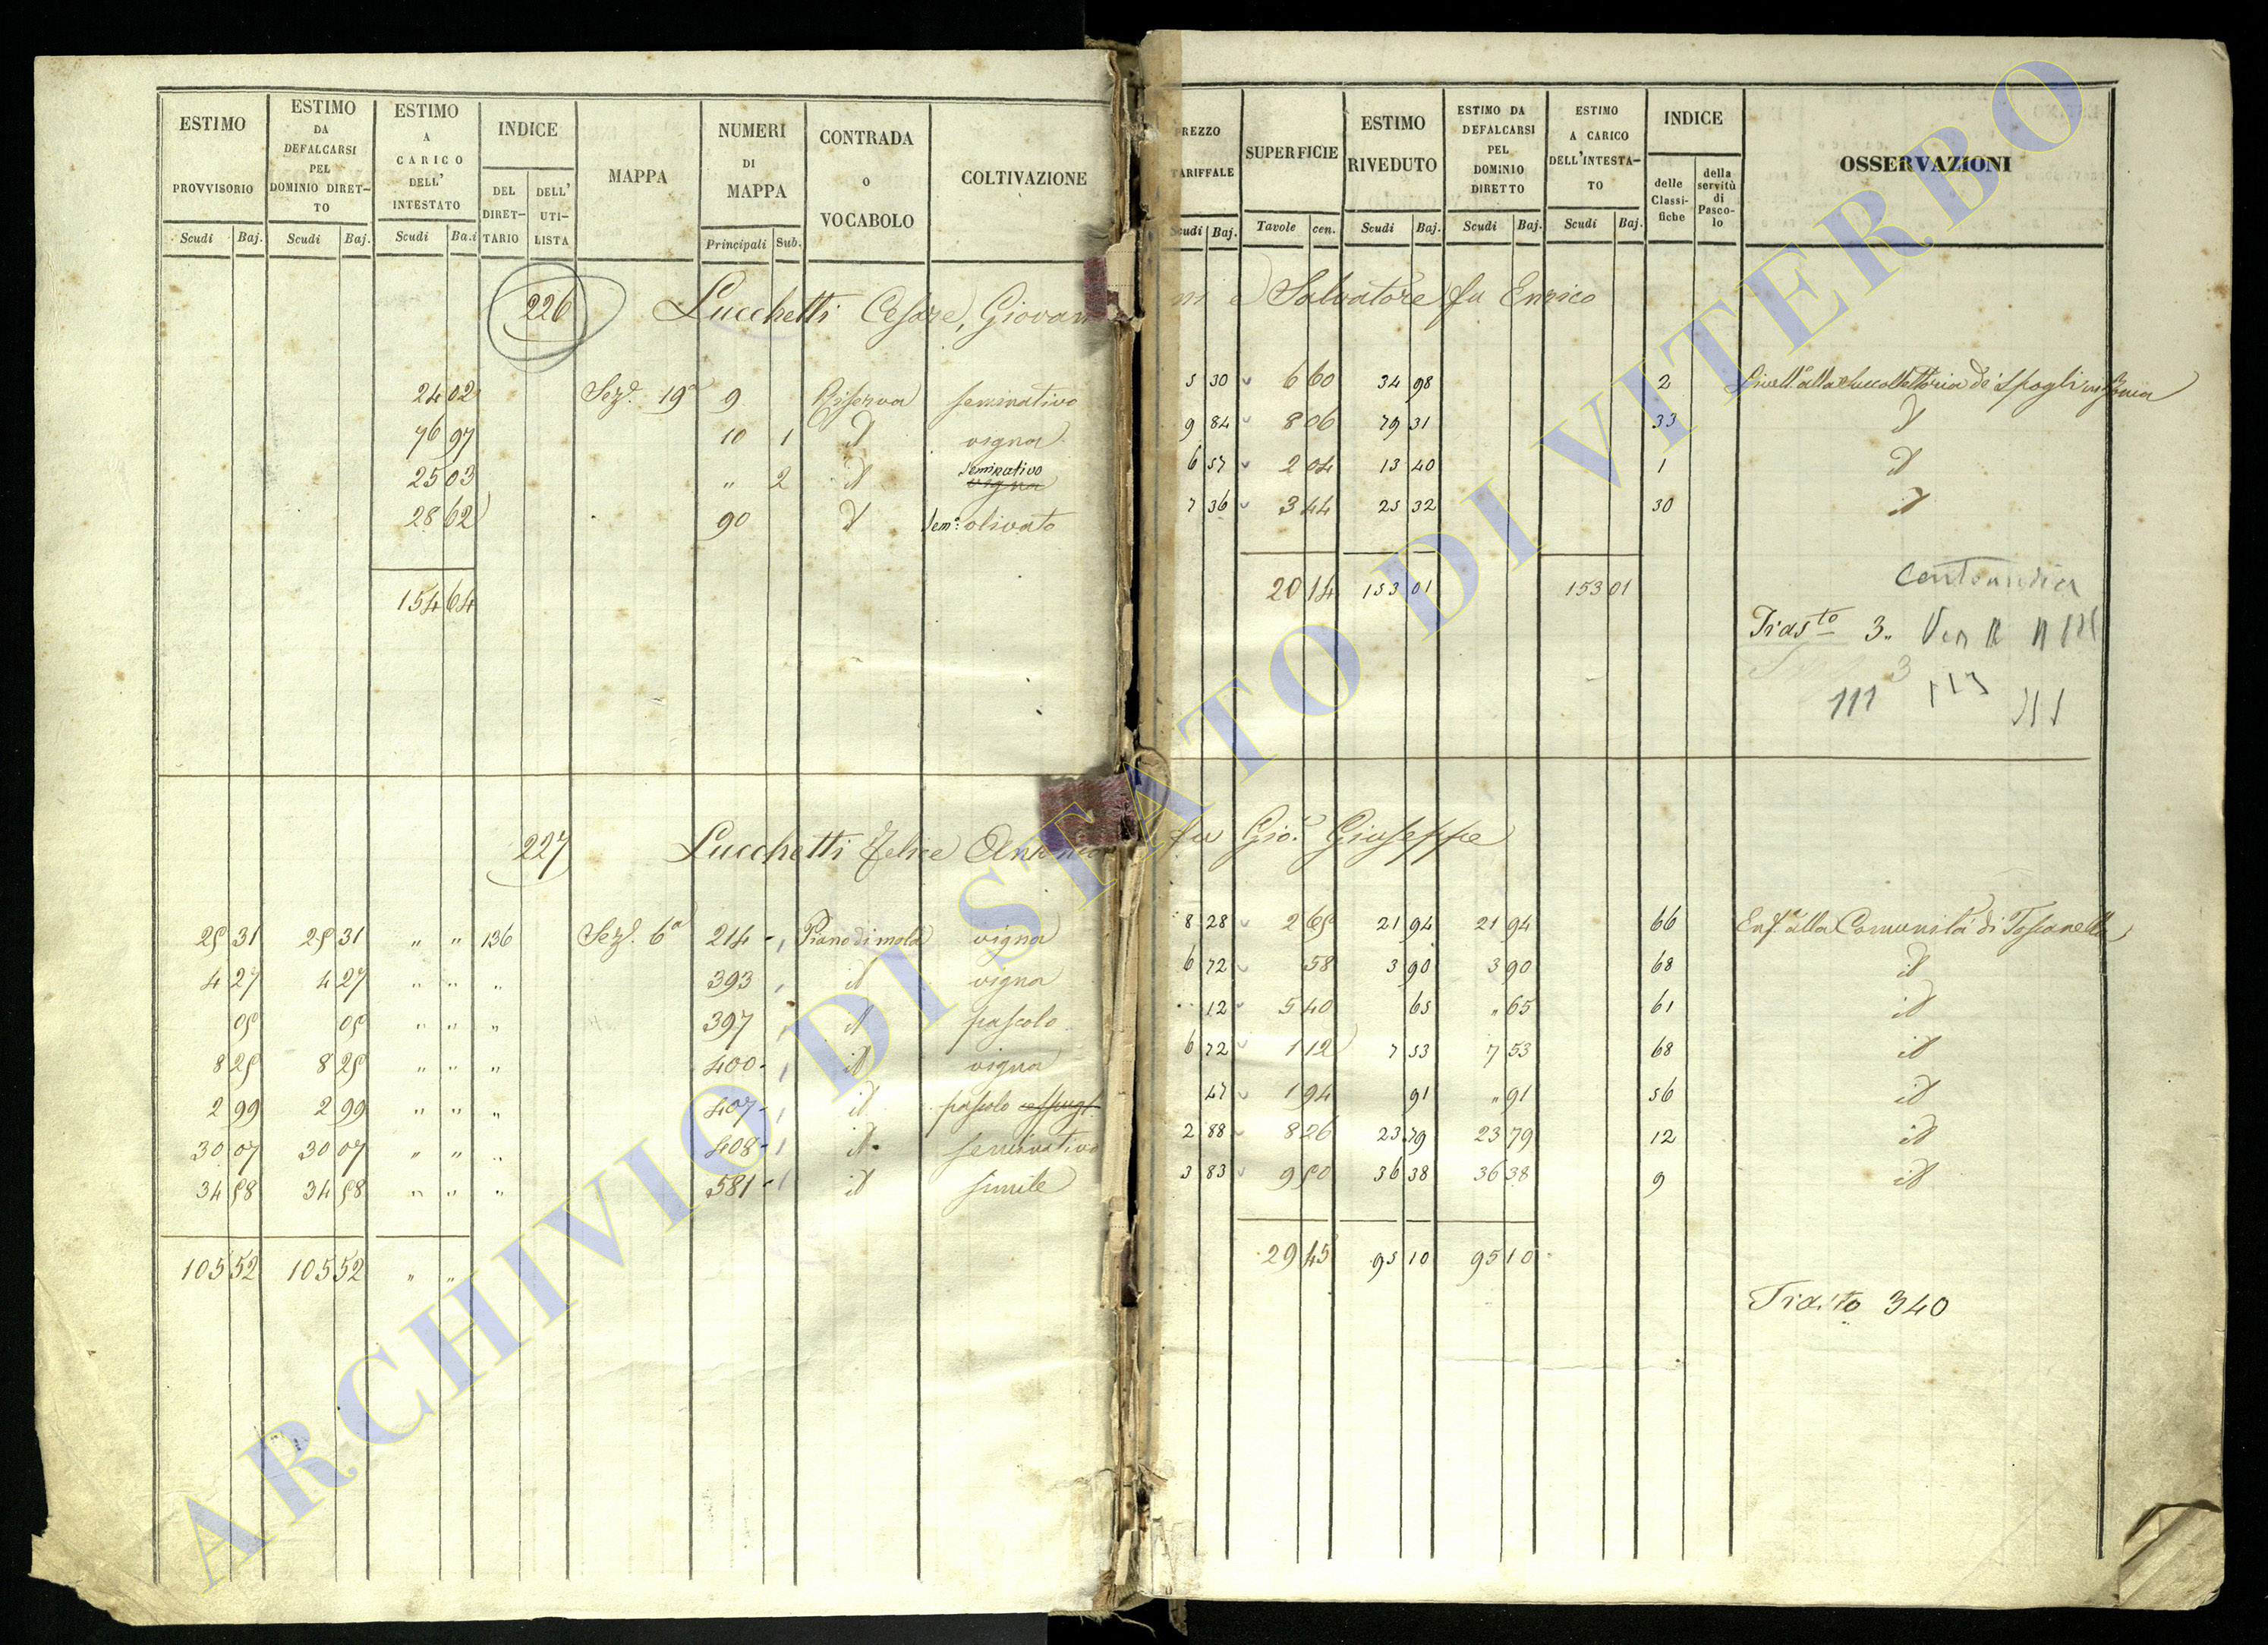 ESTIMO PROVVISORIO Scudi Baj. ESTIMO DA DEFALCARSI PEL DOMINIO DIRET-TO Scudi Baj. ESTIMO A CARICO DELL' INTESTATO Scudi Ba.i INDICE DEL DIRET-TARIO DELL' UTI-LISTA MAPPA NUMERI DI MAPPA Principali Sub. CONTRADA O VOCABOLO COLTIVAZIONE
REZZO TARIFFALE Scudi Baj. SUPERFICIE Tavole cen. ESTIMO RIVEDUTO Scudi Baj. ESTIMO DA DEFALCARSI PEL DOMINIO DIRETTO Scudi Baj. ESTIMO A CARICO DELL'INTESTA-TO Scudi Baj. INDICE delle Classi-fiche della servitù di Pasco-lo OSSERVAZIONI
226 Lucchetti Cesare, Giovanni e Salvatore fu Enrico
24 02 Sez.e 19a 9 Riserva seminativo 5 30 6 60 34 98 2 Livell.o alla Succollettoria de' Spogli
76 97 10 1 id vigna 9 84 8 06 79 31 33 id
25 03 " 2 id seminativo vigna 6 57 2 04 13 40 1 id
28 62 90 id sem.o olivato 7 36 3 44 25 32 30 id
154 64 20 14 153 01 153 01
Trasto 3..
111
227 Lucchetti Felice Antonio fu Gio. Giuseppe
25 31 25 31 " " 136 Sez.e 6a 214 Piano di mola vigna 8 28 2 65 21 94 21 94 66 Enf.a alla Comunità di Toscanella
4 27 4 27 " " " 393 id vigna 6 72 58 3 90 3 90 68 id
05 05 " " " 397 id pascolo 12 5 40 65 " 65 61 id
8 25 8 25 " " " 400 id vigna 6 72 1 12 7 53 7 53 68 id
2 99 2 99 " " " 407 id pascolo cespugl. 47 1 94 91 " 91 56 id
30 07 30 07 " " " 408 id seminativo 2 88 8 26 23 79 23 79 12 id
34 58 34 58 " " " 581 id simile 3 83 9 50 36 38 36 38 9 id
105 52 105 52 " " 29 45 95 10 95 10
Trasto 340
ARCHIVIO DI STATO DI VITERBO